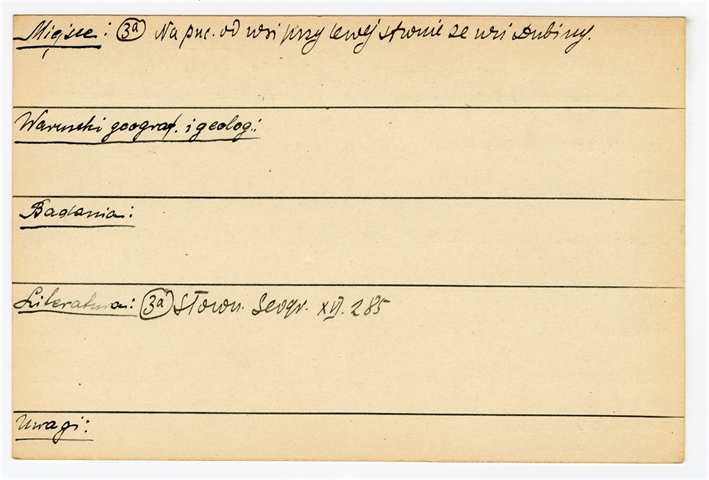 Miejsce: 3a Na pnc. od wsi przy lewej stronie ze wsi Dubiny.
Warunki geograf. i geolog.:
Badania:
Literatura: 3a Słown. Geogr. XII. 285
Uwagi: